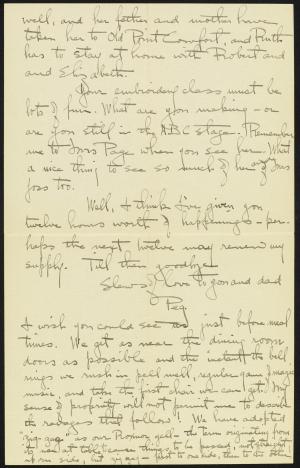 well, and her father and mother have
taken her to Old Point Comfort, and Ruth
has to stay at home with Robert and
and Elizabeth.
Your embroidery class must be
lots of fun. What are you making - or
are you still in the ABC stage. Remember
me to Mrs Page when you see her. What
a nice thing to see so much of her and of Mrs
Foss too.
Well, I think I've given you
twelve hours worth of happenings - per-
haps the next twelve may renew my
supply. Till then goodbye
Slews of love to you and dad
Peg
I wish you could see us just before meal
times. We get as near the dining room
doors as possible and the instant the bell
rings we rush in pell mell, regular game of
music, and take the first chair we can get. My
sense of propriety will not permit me to describe
the ravages that follow. We have adopted
zig-zag as our Rooming yell - the term originating from
its use at table because things to be passed, not straight
at one side, but zig zag - first to one side, then to the other